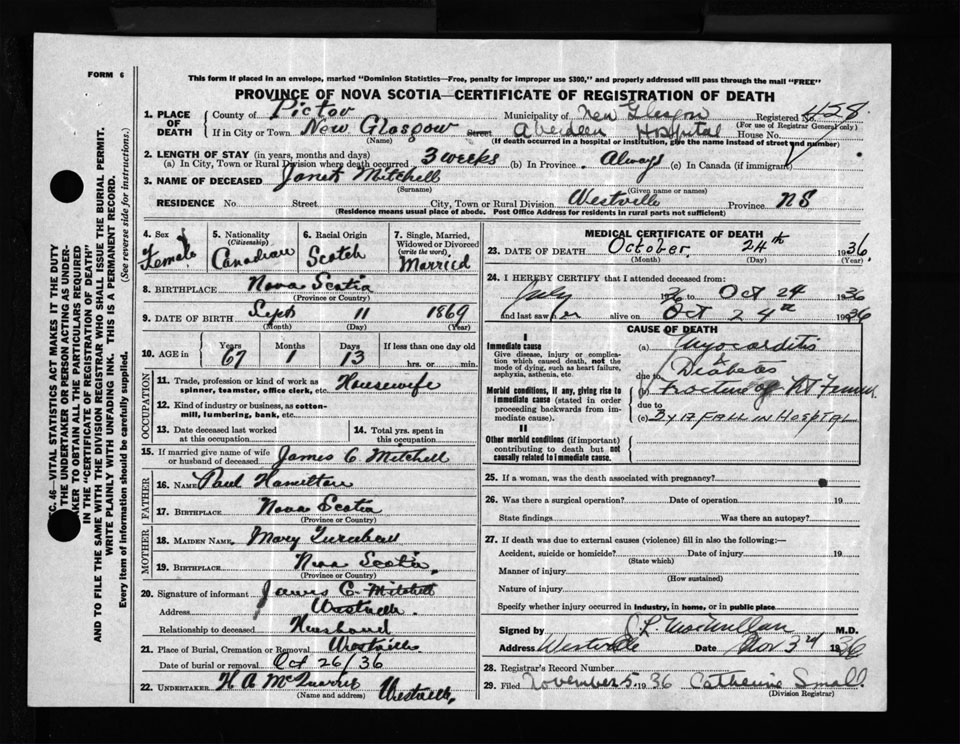 FORM 6
This form if placed in an envelope, marked "Dominion Statistics—Free, penalty for improper use $300," and properly addressed will pass through the mail "FREE"
PROVINCE OF NOVA SCOTIA—CERTIFICATE OF REGISTRATION OF DEATH
1. PLACE OF DEATH
County of Pictou Municipality of New Glasgow Registered No. 458
(For use of Registrar General only)
If in City or Town New Glasgow Street Aberdeen Hospital House No.
(Name) (If death occurred in a hospital or institution, give the name instead of street and number)
2. LENGTH OF STAY (in years, months and days)
(a) In City, Town or Rural Division where death occurred 3 weeks (b) In Province Always (c) In Canada (if immigrant)
3. NAME OF DECEASED Janet Mitchell
(Surname) (Given name or names)
RESIDENCE No. Street City, Town or Rural Division Westville Province NS
(Residence means usual place of abode. Post Office Address for residents in rural parts not sufficient)
4. Sex Female
5. Nationality (Citizenship) Canadian
6. Racial Origin Scotch
7. Single, Married, Widowed or Divorced (write the word) Married
8. BIRTHPLACE Nova Scotia
(Province or Country)
9. DATE OF BIRTH Sept 11 1869
(Month) (Day) (Year)
10. AGE in Years Months Days If less than one day old
67 1 13 hrs. or min.
OCCUPATION
11. Trade, profession or kind of work as spinner, teamster, office clerk, etc. Housewife
12. Kind of industry or business, as cotton-mill, lumbering, bank, etc.
13. Date deceased last worked at this occupation
14. Total yrs. spent in this occupation
15. If married give name of wife or husband of deceased James C. Mitchell
FATHER
16. NAME Paul
17. BIRTHPLACE Nova Scotia
(Province or Country)
MOTHER
18. MAIDEN NAME Mary
19. BIRTHPLACE Nova Scotia
(Province or Country)
20. Signature of informant James C. Mitchell
Address Westville
Relationship to deceased Husband
21. Place of Burial, Cremation or Removal Westville
Date of burial or removal Oct 26/36
22. UNDERTAKER H A McQuarrie Westville
(Name and address)
MEDICAL CERTIFICATE OF DEATH
23. DATE OF DEATH October 24th 1936
(Month) (Day) (Year)
24. I HEREBY CERTIFY that I attended deceased from:
July 1936 to Oct 24 1936
and last saw her alive on Oct 24th 1936
CAUSE OF DEATH
I
Immediate cause
Give disease, injury or complication which caused death, not the mode of dying, such as heart failure, asphyxia, asthenia, etc.
(a) Myocarditis &
due to Diabetes
Morbid conditions, if any, giving rise to immediate cause (stated in order proceeding backwards from immediate cause).
(b) Fracture of Rt Femur
due to
(c) By A FALL IN HOSPITAL
II
Other morbid conditions (if important) contributing to death but not causally related to immediate cause.
25. If a woman, was the death associated with pregnancy?
26. Was there a surgical operation? Date of operation 19
State findings Was there an autopsy?
27. If death was due to external causes (violence) fill in also the following:—
Accident, suicide or homicide? Date of injury 19
(State which)
Manner of injury
(How sustained)
Nature of injury
Specify whether injury occurred in industry, in home, or in public place
Signed by C L MacMillan M.D.
Address Westville Date Nov 3rd 1936
28. Registrar's Record Number
29. Filed November 5, 1936 Catherine Small
(Division Registrar)
SEC. 46—VITAL STATISTICS ACT MAKES IT THE DUTY
OF THE UNDERTAKER OR PERSON ACTING AS UNDER-
TAKER TO OBTAIN ALL THE PARTICULARS REQUIRED
IN THE "CERTIFICATE OF REGISTRATION OF DEATH"
AND TO FILE THE SAME WITH THE DIVISION REGISTRAR WHO SHALL ISSUE THE BURIAL PERMIT.
WRITE PLAINLY WITH UNFADING INK. THIS IS A PERMANENT RECORD.
Every item of information should be carefully supplied. (See reverse side for instructions.)